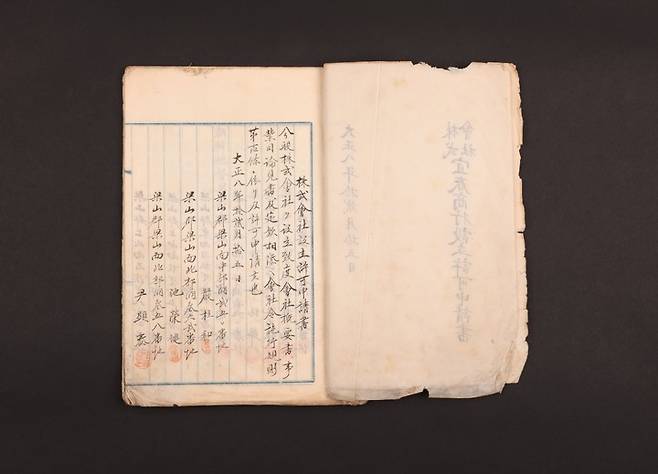 株式會社宜春商行設立許可申請書
大正八年拾貳月拾五日
株式會社設立許可申請書
今般株式會社ヲ設立致度會社槪要書事
業目論見書及定款相添ヘ會社令施行規則
條ニ依リ及許可申請候也
大正八年拾貳月拾五日
梁山郡梁山面中部洞番地
嚴柱和
梁山郡梁山面北部洞參六貳番地
池榮
梁山郡梁山面北部洞參五八番地
尹顯泰